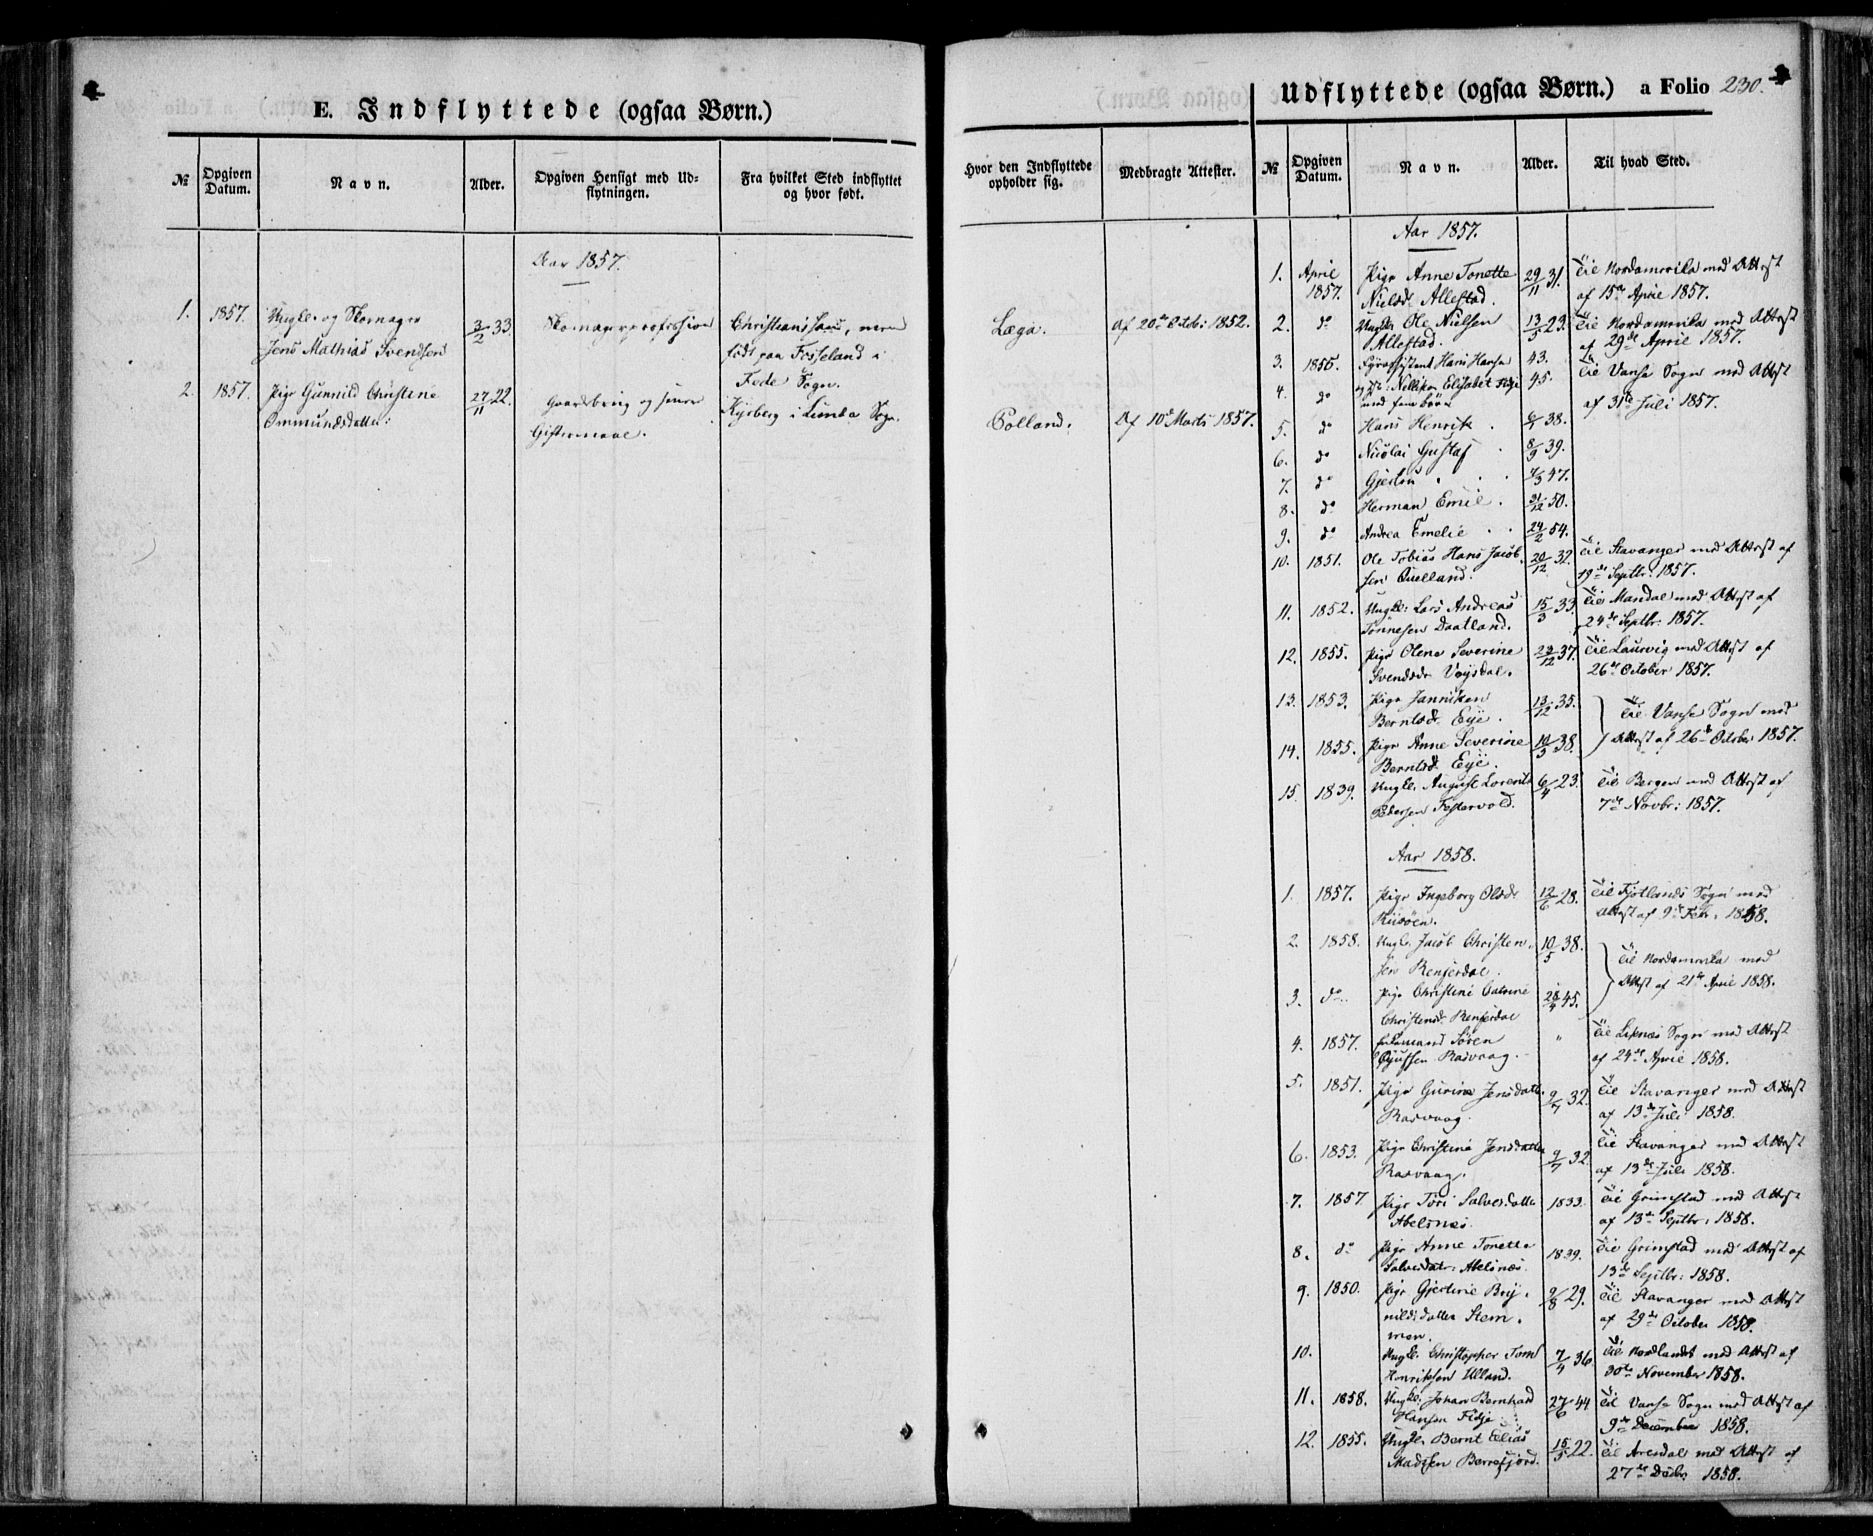 E. Indflyttede (ogsaa Børn.)
№
Opgiven Datum.
Navn.
Alder.
Opgiven Hensigt med Ud-
flytningen.
Fra hvilket Sted indflyttet
og hvor født.
Aar 1857.
1. 1857. Ungk. og Skomager 3/2 33. Skomagerprofession Christianssand, men
Jens Mathias Svendsen født paa Fosseland i
Fede Sogn.
2. 1857. Pige Gunnild Christine 27/11 22. Gaardbrug og
Ommundsdatter Giftermaal. i Sogn.
Hvor den Indflyttede
opholder sig.
Medbragte Attester.
Læga. af 20de Octob: 1852.
Af 10de Marts 1857.
Udflyttede (ogsaa Børn.) a Folio 230.
№
Opgiven Datum.
Navn.
Alder.
Til hvad Sted.
Aar 1857.
1. April Pige Anne Tonette 29/11 31. Til Nordamerika med Attest
1857. Nielsd. Allestad. af 15de April 1857.
2. do Ungk. Ole Nielsen 13/5 23. Til Nordamerika med Attest
Allestad. af 29de April 1857.
3. 1856. Hans Hansen 43. Til Vanse Sogn med Attest
4. do Elisabet Fidje 45. af 31te Juli 1857.
med fem børn
5. do Hans Henrik 38.
6. do Nicolai Gustaf 8/9 39.
7. do 7/3 47.
8. do Herman Emil. 31/12 50.
9. do Andrea Emelie 24/2 54.
10. 1851. Ole Tobias Hans Jacob- 20/12 32. Til Stavanger med Attest af
sen Qvelland. 19de Septbr. 1857.
11. 1852. Ungk: Lars Andreas 15/3 33. Til Mandal med Attest af
Tønnesen Daatland. 24de Septbr. 1857.
12. 1855. Pige Olene Severine 23/12 37. Til Laurvig med Attest af
Svendsdr 26de October 1857.
13. 1853. Pige Janniken 13/12 35. Til Vanse Sogn med
Berntsd. Eye. Attest af 26de October 1857.
14. 1855. Pige Anne Severine 10/3 38.
Berntsd. Eye.
15. 1839. Ungk. August Lorents 6/4 23. Til Bergen med Attest af
Pedersen Festervold. 7de Novbr: 1857.
Aar 1858.
1. 1857. Pige Ingeborg Olsdr 12/6 28. Til Fjotlands Sogn med
Attest af 9de Febr. 1858.
2. 1858. Ungk. Jacob Christen- 10/5 38. Til Nordamerika med
sen Refserdal. Attest af 21de April 1858.
3. do Pige Christine Catrine 28/4 45.
Christensd. Refserdal
4. 1857. Søren " Til Liknes Sogn med Attest
Rasvaag. af 24de April 1858.
5. 1851. Pige Gurine Jensdatter 9/7 32. Til Stavanger med Attest
Rasvaag. af 13de Juli 1858.
6. 1853. Pige Christine Jensdatter 9/7 32. Til Stavanger med Attest
Rasvaag. af 13de Juli 1858.
7. 1857 Pige Tori Salvesdatter 1833. Til Grimstad med Attest
Abelsnes. af 13de Septbr: 1858.
8. do Pige Anne Tonette 1839. Til Grimstad med Attest af
Salvesdatr: Abelsnes. 13de Septbr: 1858.
9. 1850. Pige Gjertine Bry- 9/8 29. Til Stavanger med Attest
nildsdatter Stem- af 29de October 1858.
men.
10. Ungk. Christopher 7/4 36. Til Nordlandet med Attest af
Henriksen Ulland. 30te November 1858.
11. 1858. Ungk. Johan Bernhard 27/6 44 Til Vanse Sogn med Attest af
Hansen Fidje 9de December 1858.
12. 1855. Ungk. Bernt Elias 15/5 22. Til Arendal med Attest af
Madsen Berrefjord. 27de Decbr 1858.